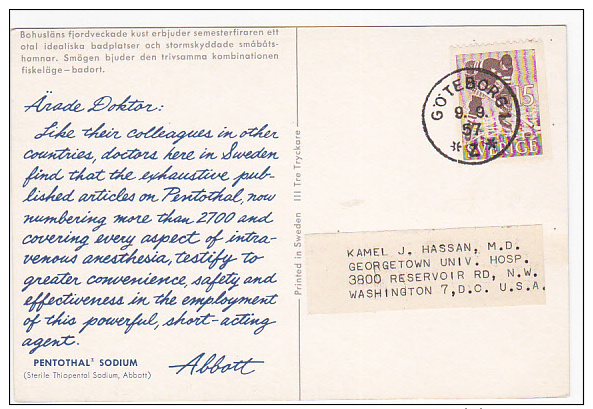 Bohusläns fjordveckade kust erbjuder semesterfiraren ett
otal idealiska badplatser och stormskyddade småbåts-
hamnar. Smögen bjuder den trivsamma kombinationen
fiskeläge—badort.
Ärade Doktor:
Like their colleagues in other
countries, doctors here in Sweden
find that the exhaustive pub-
lished articles on Pentothal, now
numbering more than 2700 and
covering every aspect of intra-
venous anesthesia, testify to
greater convenience, safety and
effectiveness in the employment
of this powerful, short-acting
agent.
PENTOTHAL® SODIUM
(Sterile Thiopental Sodium, Abbott)
Abbott
Printed in Sweden III Tre Tryckare
GÖTEBORG 1
9.9.
57
KAMEL J. HASSAN, M.D.
GEORGETOWN UNIV. HOSP.
3800 RESERVOIR RD, N.W.
WASHINGTON 7,D.C. U.S.A.